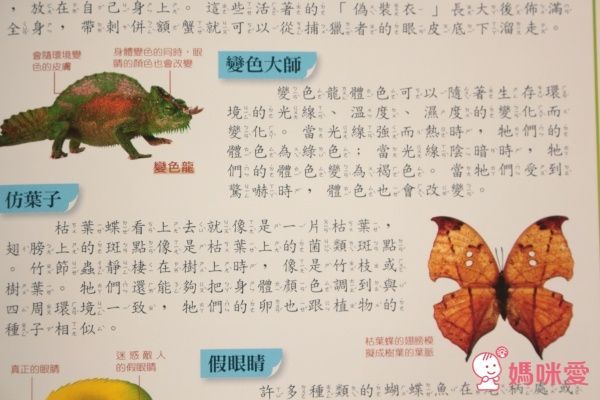 ，放在自己身上。這些活著的「偽裝衣」長大後佈滿
全身，帶刺併額蟹就可以從捕獵者的眼皮底下溜走。
會隨環境變
色的皮膚
身體變色的同時，眼
睛的顏色也會改變
變色龍
變色大師
變色龍體色可以隨著生存環
境的光線、溫度、濕度的變化而
變化。當光線強而熱時，牠們的
體色為綠色；當光線陰暗時，牠
們的體色變為褐色。當牠們受到
驚嚇時，體色也會改變。
仿葉子
枯葉蝶看上去就像是一片枯葉，
翅膀上的斑點像是枯葉上的菌類斑點
。竹節蟲靜棲在樹上時，像是竹枝或
樹葉。牠們還能夠把身體顏色調到與
四周環境一致，牠們的卵也跟植物的
種子相似。
枯葉蝶的翅膀模
擬成樹葉的葉脈
真正的眼睛
迷惑敵人
的假眼睛
假眼睛
許多種類的蝴蝶魚在尾柄處或
媽咪愛